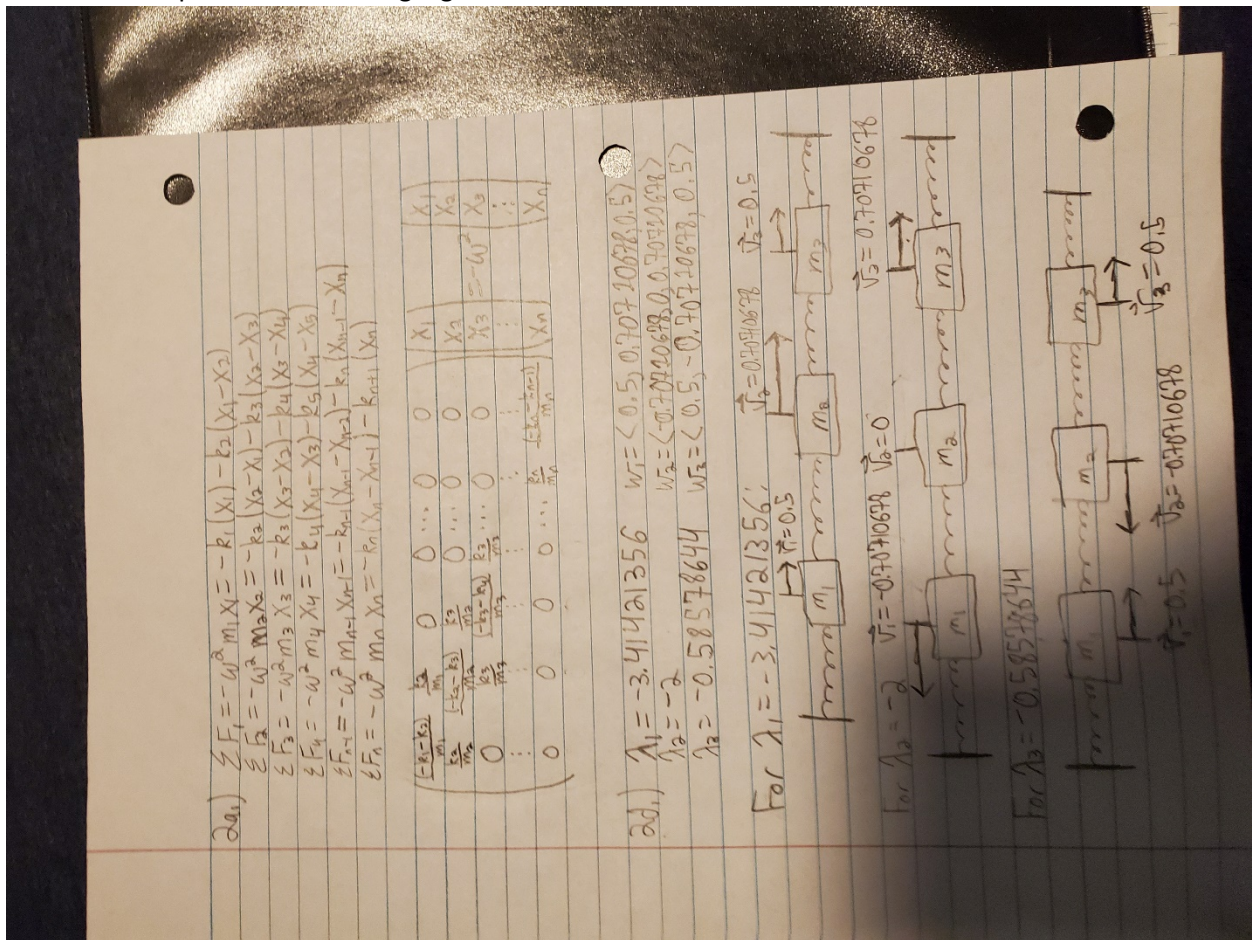 2a.) ΣF₁ = -ω² m₁x₁ = -k₁(x₁) - k₂(x₁-x₂)
ΣF₂ = -ω² m₂x₂ = -k₂(x₂-x₁) - k₃(x₂-x₃)
ΣF₃ = -ω² m₃x₃ = -k₃(x₃-x₂) - k₄(x₃-x₄)
ΣF₄ = -ω² m₄x₄ = -k₄(x₄-x₃) - k₅(x₄-x₅)
ΣFₙ₋₁ = -ω² mₙ₋₁xₙ₋₁ = -kₙ₋₁(xₙ₋₁-xₙ₋₂) - kₙ(xₙ₋₁-xₙ)
ΣFₙ = -ω² mₙ xₙ = -kₙ(xₙ-xₙ₋₁) - kₙ₊₁(xₙ)
(-k₁-k₂)/m₁ k₂/m₁ 0 0 ... 0 0 x₁ x₁
k₂/m₂ (-k₂-k₃)/m₂ k₃/m₂ 0 ... 0 0 x₂ x₂
0 k₃/m₃ (-k₃-k₄)/m₃ k₃/m₃ ... 0 0 x₃ = -ω² x₃
⋮ ⋮ ⋮ ⋮ ⋮ ⋮ ⋮ ⋮
0 0 0 0 ... kₙ/mₙ (-kₙ-kₙ₊₁)/mₙ xₙ xₙ
2d.) λ₁ = -3.41421356 w₁ = <0.5, 0.70710678, 0.5>
λ₂ = -2 w₂ = <-0.70710678, 0, 0.70710678>
λ₃ = -0.58578644 w₃ = <0.5, -0.70710678, 0.5>
For λ₁ = -3.41421356:
v⃗₁ = 0.5 v⃗₂ = 0.70710678 v⃗₃ = 0.5
m₁ m₂ m₃
For λ₂ = -2
v⃗₁ = -0.70710678 v⃗₂ = 0 v⃗₃ = 0.70710678
m₁ m₂ m₃
For λ₃ = -0.58578644
m₁ m₂ m₃
v⃗₁ = 0.5 v⃗₂ = -0.70710678 v⃗₃ = 0.5